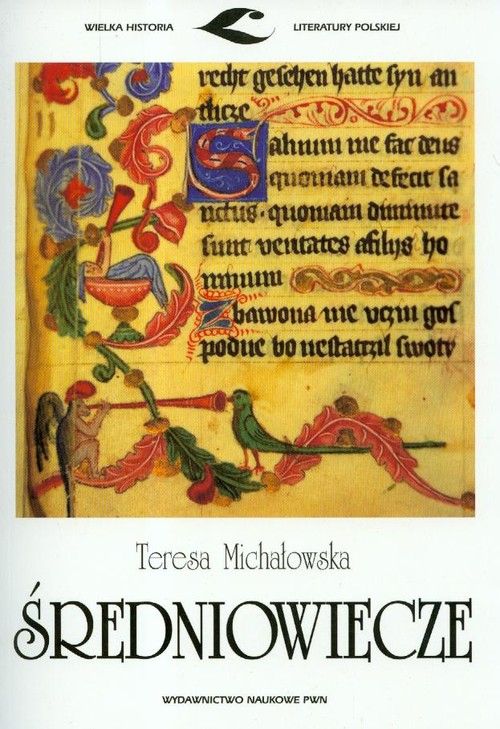 WIELKA HISTORIA LITERATURY POLSKIEJ
recht gesehen hatte syn an
tlicze
Saluum me fac deus
quoniam defecit sa
nctus · quoniam diminute
sunt ueritates afilys ho
minum
Zbawona me uczin gos
podne bo nestatczil swoty
Teresa Michałowska
ŚREDNIOWIECZE
WYDAWNICTWO NAUKOWE PWN